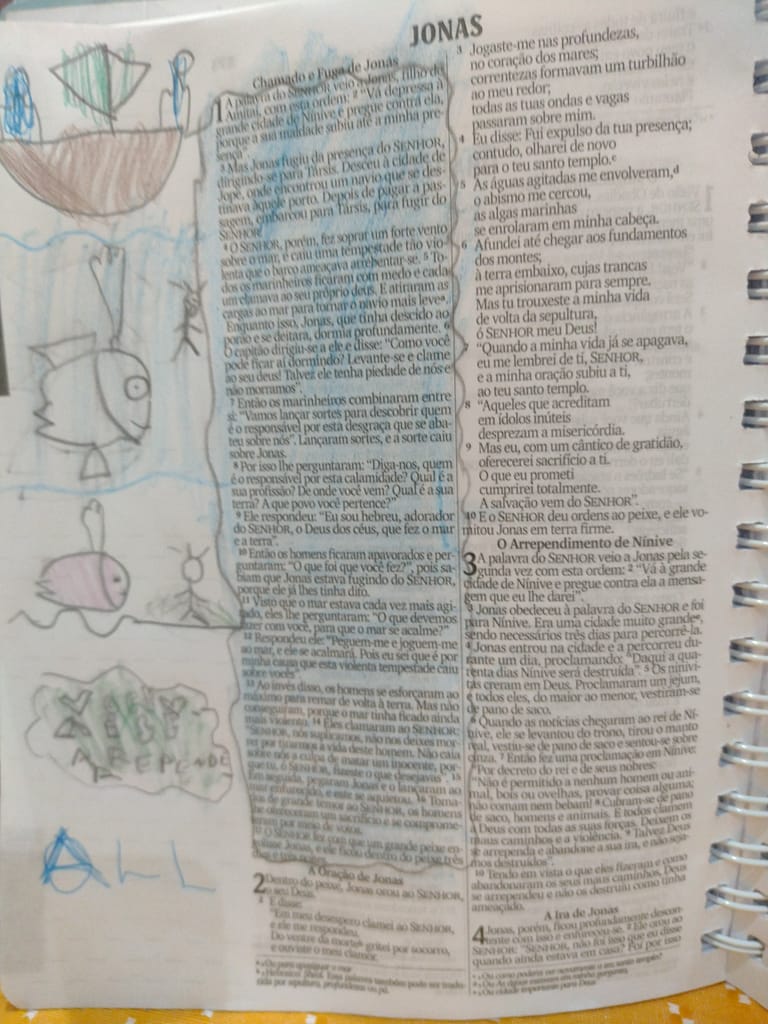 JONAS
Chamado e Fuga de Jonas
1 A palavra do SENHOR veio a Jonas, filho de
Amitai, com esta ordem: 2 "Vá depressa à
grande cidade de Nínive e pregue contra ela,
porque a sua maldade subiu até a minha pre-
sença".
3 Mas Jonas fugiu da presença do SENHOR,
dirigindo-se para Társis. Desceu à cidade de
Jope, onde encontrou um navio que se des-
tinava àquele porto. Depois de pagar a pas-
sagem, embarcou para Társis, para fugir do
SENHOR.
4 O SENHOR, porém, fez soprar um forte vento
sobre o mar, e caiu uma tempestade tão vio-
lenta que o barco ameaçava arrebentar-se. 5 To-
dos os marinheiros ficaram com medo e cada
um clamava ao seu próprio deus. E atiraram as
cargas ao mar para tornar o navio mais leve a.
Enquanto isso, Jonas, que tinha descido ao
porão e se deitara, dormia profundamente. 6
O capitão dirigiu-se a ele e disse: "Como você
pode ficar aí dormindo? Levante-se e clame
ao seu deus! Talvez ele tenha piedade de nós e
não morramos".
7 Então os marinheiros combinaram entre
si: "Vamos lançar sortes para descobrir quem
é o responsável por esta desgraça que se aba-
teu sobre nós". Lançaram sortes, e a sorte caiu
sobre Jonas.
8 Por isso lhe perguntaram: "Diga-nos, quem
é o responsável por esta calamidade? Qual é a
sua profissão? De onde você vem? Qual é a sua
terra? A que povo você pertence?"
9 Ele respondeu: "Eu sou hebreu, adorador
do SENHOR, o Deus dos céus, que fez o mar
e a terra".
10 Então os homens ficaram apavorados e per-
guntaram: "O que foi que você fez?", pois sa-
biam que Jonas estava fugindo do SENHOR,
porque ele já lhes tinha dito.
11 Visto que o mar estava cada vez mais agi-
tado, eles lhe perguntaram: "O que devemos
fazer com você, para que o mar se acalme?"
12 Respondeu ele: "Peguem-me e joguem-me
ao mar, e ele se acalmará. Pois eu sei que é por
minha causa que esta violenta tempestade caiu
sobre vocês".
13 Ao invés disso, os homens se esforçaram ao
máximo para remar de volta à terra. Mas não
conseguiram, porque o mar tinha ficado ainda
mais violento. 14 Eles clamaram ao SENHOR:
"SENHOR, nós suplicamos, não nos deixes mor-
rer por tirarmos a vida deste homem. Não caia
sobre nós a culpa de matar um inocente, por-
que tu, ó SENHOR, fizeste o que desejavas". 15
Em seguida, pegaram Jonas e o lançaram ao
mar enfurecido, e este se aquietou. 16 Toma-
dos de grande temor ao SENHOR, os homens
lhe ofereceram um sacrifício e se comprome-
teram por meio de votos.
17 O SENHOR fez com que um grande peixe en-
golisse Jonas, e ele ficou dentro do peixe três
dias e três noites.
A Oração de Jonas
2 Dentro do peixe, Jonas orou ao SENHOR,
o seu Deus.
2 E disse:
"Em meu desespero clamei ao SENHOR,
e ele me respondeu.
Do ventre da morte b gritei por socorro,
e ouviste o meu clamor.
3 Jogaste-me nas profundezas,
no coração dos mares;
correntezas formavam um turbilhão
ao meu redor;
todas as tuas ondas e vagas
passaram sobre mim.
4 Eu disse: Fui expulso da tua presença;
contudo, olharei de novo
para o teu santo templo. c
5 As águas agitadas me envolveram, d
o abismo me cercou,
as algas marinhas
se enrolaram em minha cabeça.
6 Afundei até chegar aos fundamentos
dos montes;
à terra embaixo, cujas trancas
me aprisionaram para sempre.
Mas tu trouxeste a minha vida
de volta da sepultura,
ó SENHOR meu Deus!
7 "Quando a minha vida já se apagava,
eu me lembrei de ti, SENHOR,
e a minha oração subiu a ti,
ao teu santo templo.
8 "Aqueles que acreditam
em ídolos inúteis
desprezam a misericórdia.
9 Mas eu, com um cântico de gratidão,
oferecerei sacrifício a ti.
O que eu prometi
cumprirei totalmente.
A salvação vem do SENHOR".
10 E o SENHOR deu ordens ao peixe, e ele vo-
mitou Jonas em terra firme.
O Arrependimento de Nínive
3 A palavra do SENHOR veio a Jonas pela se-
gunda vez com esta ordem: 2 "Vá à grande
cidade de Nínive e pregue contra ela a mensa-
gem que eu lhe darei".
3 Jonas obedeceu à palavra do SENHOR e foi
para Nínive. Era uma cidade muito grande e,
sendo necessários três dias para percorrê-la.
4 Jonas entrou na cidade e a percorreu du-
rante um dia, proclamando: "Daqui a qua-
renta dias Nínive será destruída". 5 Os ninivi-
tas creram em Deus. Proclamaram um jejum,
e todos eles, do maior ao menor, vestiram-se
de pano de saco.
6 Quando as notícias chegaram ao rei de Ní-
nive, ele se levantou do trono, tirou o manto
real, vestiu-se de pano de saco e sentou-se sobre
cinza. 7 Então fez uma proclamação em Nínive:
"Por decreto do rei e de seus nobres:
"Não é permitido a nenhum homem ou ani-
mal, bois ou ovelhas, provar coisa alguma;
não comam nem bebam! 8 Cubram-se de pano
de saco, homens e animais. E todos clamem
a Deus com todas as suas forças. Deixem os
maus caminhos e a violência. 9 Talvez Deus
se arrependa e abandone a sua ira, e não seja-
mos destruídos".
10 Tendo em vista o que eles fizeram e como
abandonaram os seus maus caminhos, Deus
se arrependeu e não os destruiu como tinha
ameaçado.
A Ira de Jonas
4 Jonas, porém, ficou profundamente descon-
tente com isso e enfureceu-se. 2 Ele orou ao
SENHOR: "SENHOR, não foi isso que eu disse
quando ainda estava em casa? Foi por isso
ARREPENDE
ALL